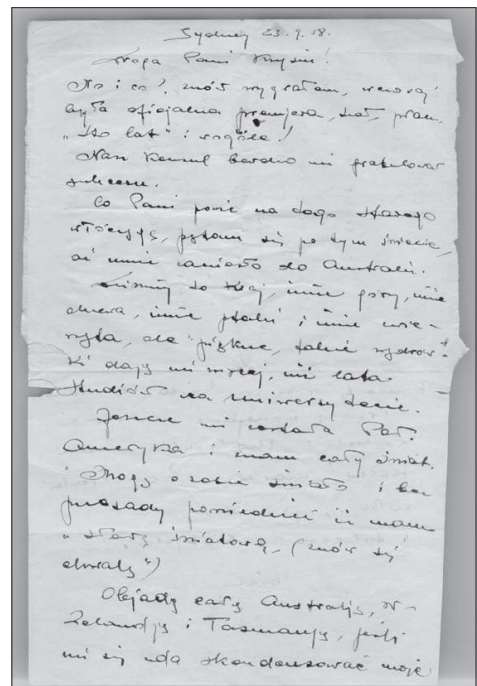 Sydney 23.9.58.
Droga Pani Krysiu!
No i co? znów wygrałam, wczoraj
była oficjalna premjera, szał, płacz,
"Sto lat" i wogóle!
Nasz Konsul bardzo mi gratulował
sukcesu.
Co Pani powie na tego starego
włóczęgę, pętam się po tym świecie,
aż mnie zaniosło do Australii.
Śliczny to kraj, inne góry, inne
drzewa, inne ptaki i inne
ale piękne, takie wędrów-
ki dają mi więcej, niż lata
studiów na Uniwersytecie.
Jeszcze mi została Poł.
Ameryka i znam cały świat.
Mogę o sobie śmiało i bez
przesady powiedzieć iż mam
"sławę światową, (znów się
chwalę")
Objadę całą Australię, N-
Zelandję i Tasmanję, jeśli
mi się uda skondensować moje